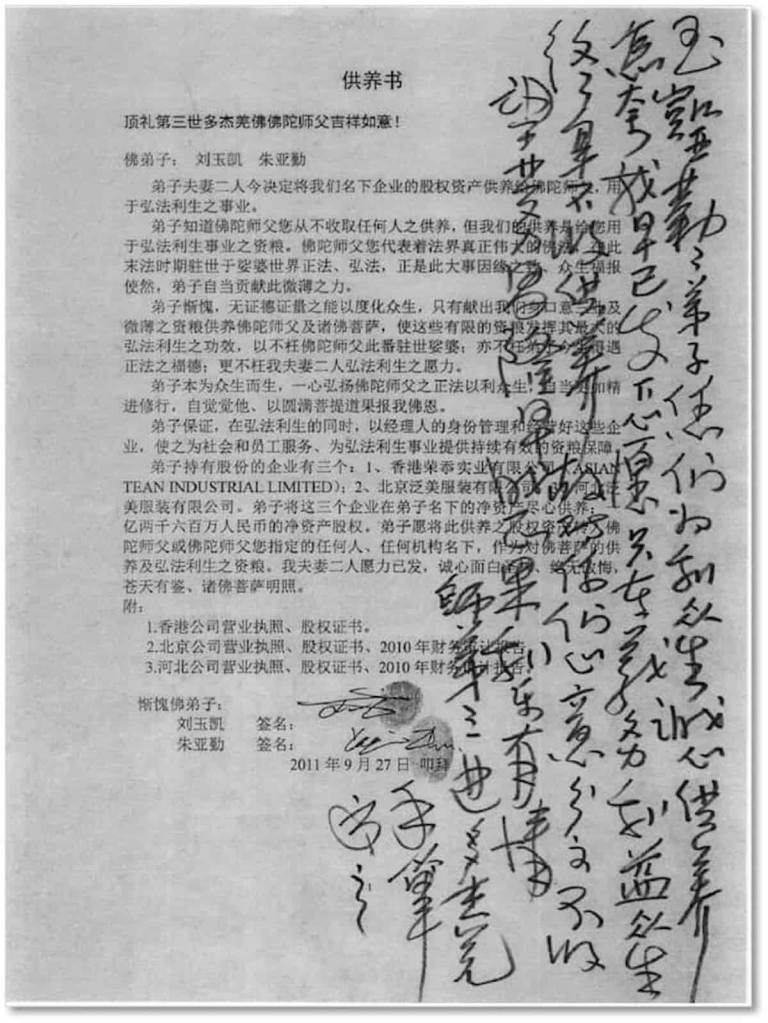 供养书
顶礼第三世多杰羌佛佛陀师父吉祥如意！
佛弟子： 刘玉凯 朱亚勤
弟子夫妻二人今决定将我们名下企业的股权资产供养给佛陀师父，用
于弘法利生之事业。
弟子知道佛陀师父您从不收取任何人之供养，但我们的供养是给您用
于弘法利生事业之资粮。佛陀师父您代表着法界真正伟大的佛法，在此
末法时期驻世于娑婆世界正法、弘法，正是此大事因缘之致、众生福报
使然，弟子自当贡献此微薄之力。
弟子惭愧，无证德证量之能以度化众生，只有献出我们身口意三业及
微薄之资粮供养佛陀师父及诸佛菩萨，使这些有限的资粮发挥其最大的
弘法利生之功效，以不枉佛陀师父此番驻世娑婆；亦不枉弟子今生得遇
正法之福德；更不枉我夫妻二人弘法利生之愿力。
弟子本为众生而生，一心弘扬佛陀师父之正法以利众生，自当更加精
进修行，自觉觉他、以圆满菩提道果报我佛恩。
弟子保证，在弘法利生的同时，以经理人的身份管理和经营好这些企
业，使之为社会和员工服务、为弘法利生事业提供持续有效的资粮保障。
弟子持有股份的企业有三个：1、香港荣添实业有限公司（ASIAN
TEAN INDUSTRIAL LIMITED）；2、北京泛美服装有限公司；3、河北泛
美服装有限公司。弟子将这三个企业在弟子名下的净资产尽心供养：
亿两千六百万人民币的净资产股权。弟子愿将此供养之股权资产转入佛
陀师父或佛陀师父您指定的任何人、任何机构名下，作为对佛菩萨的供
养及弘法利生之资粮。我夫妻二人愿力已发，诚心而白，绝无改悔，
苍天有鉴、诸佛菩萨明照。
附：
1.香港公司营业执照、股权证书。
2.北京公司营业执照、股权证书、2010年财务审计报告。
3.河北公司营业执照、股权证书、2010年财务审计报告。
惭愧佛弟子：
刘玉凯 签名：
朱亚勤 签名：
2011年9月27日 叩拜
玉凯亚勤二弟子您们为利众生诚心供养
怎奈我早已发下心愿只在义务利益众生
终了身不收供养故你们心意分文不收
利乐有情
第三世多杰羌